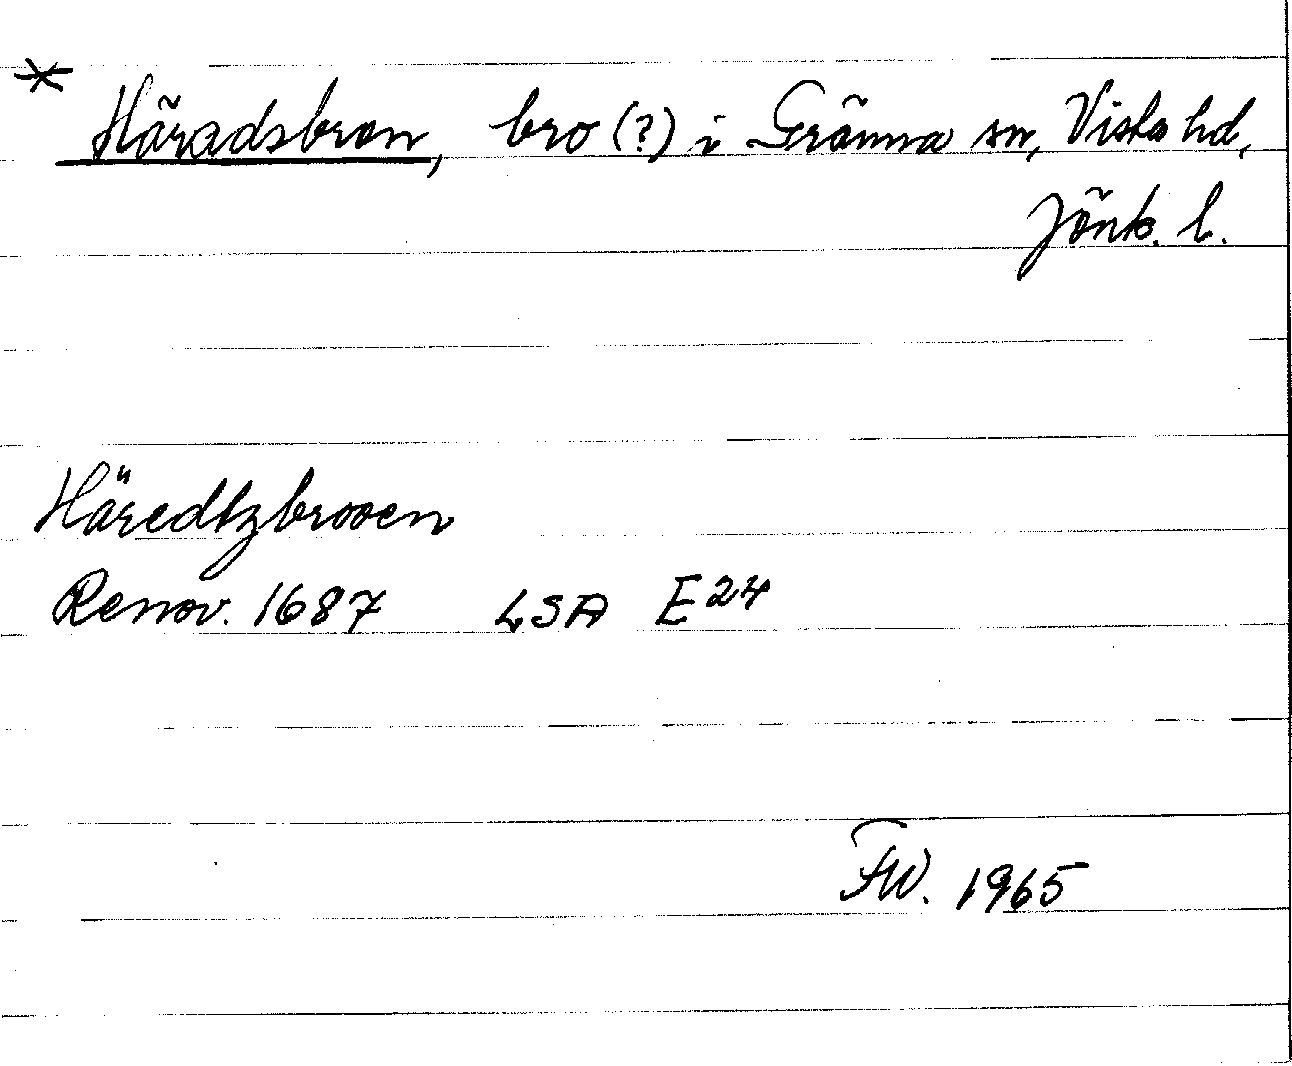 * Häradsbron, bro (?) i Gränna sn, Vista hd,
Jönk. l.
Häredtzbrooen
Renov. 1687 LSA E24
FW. 1965